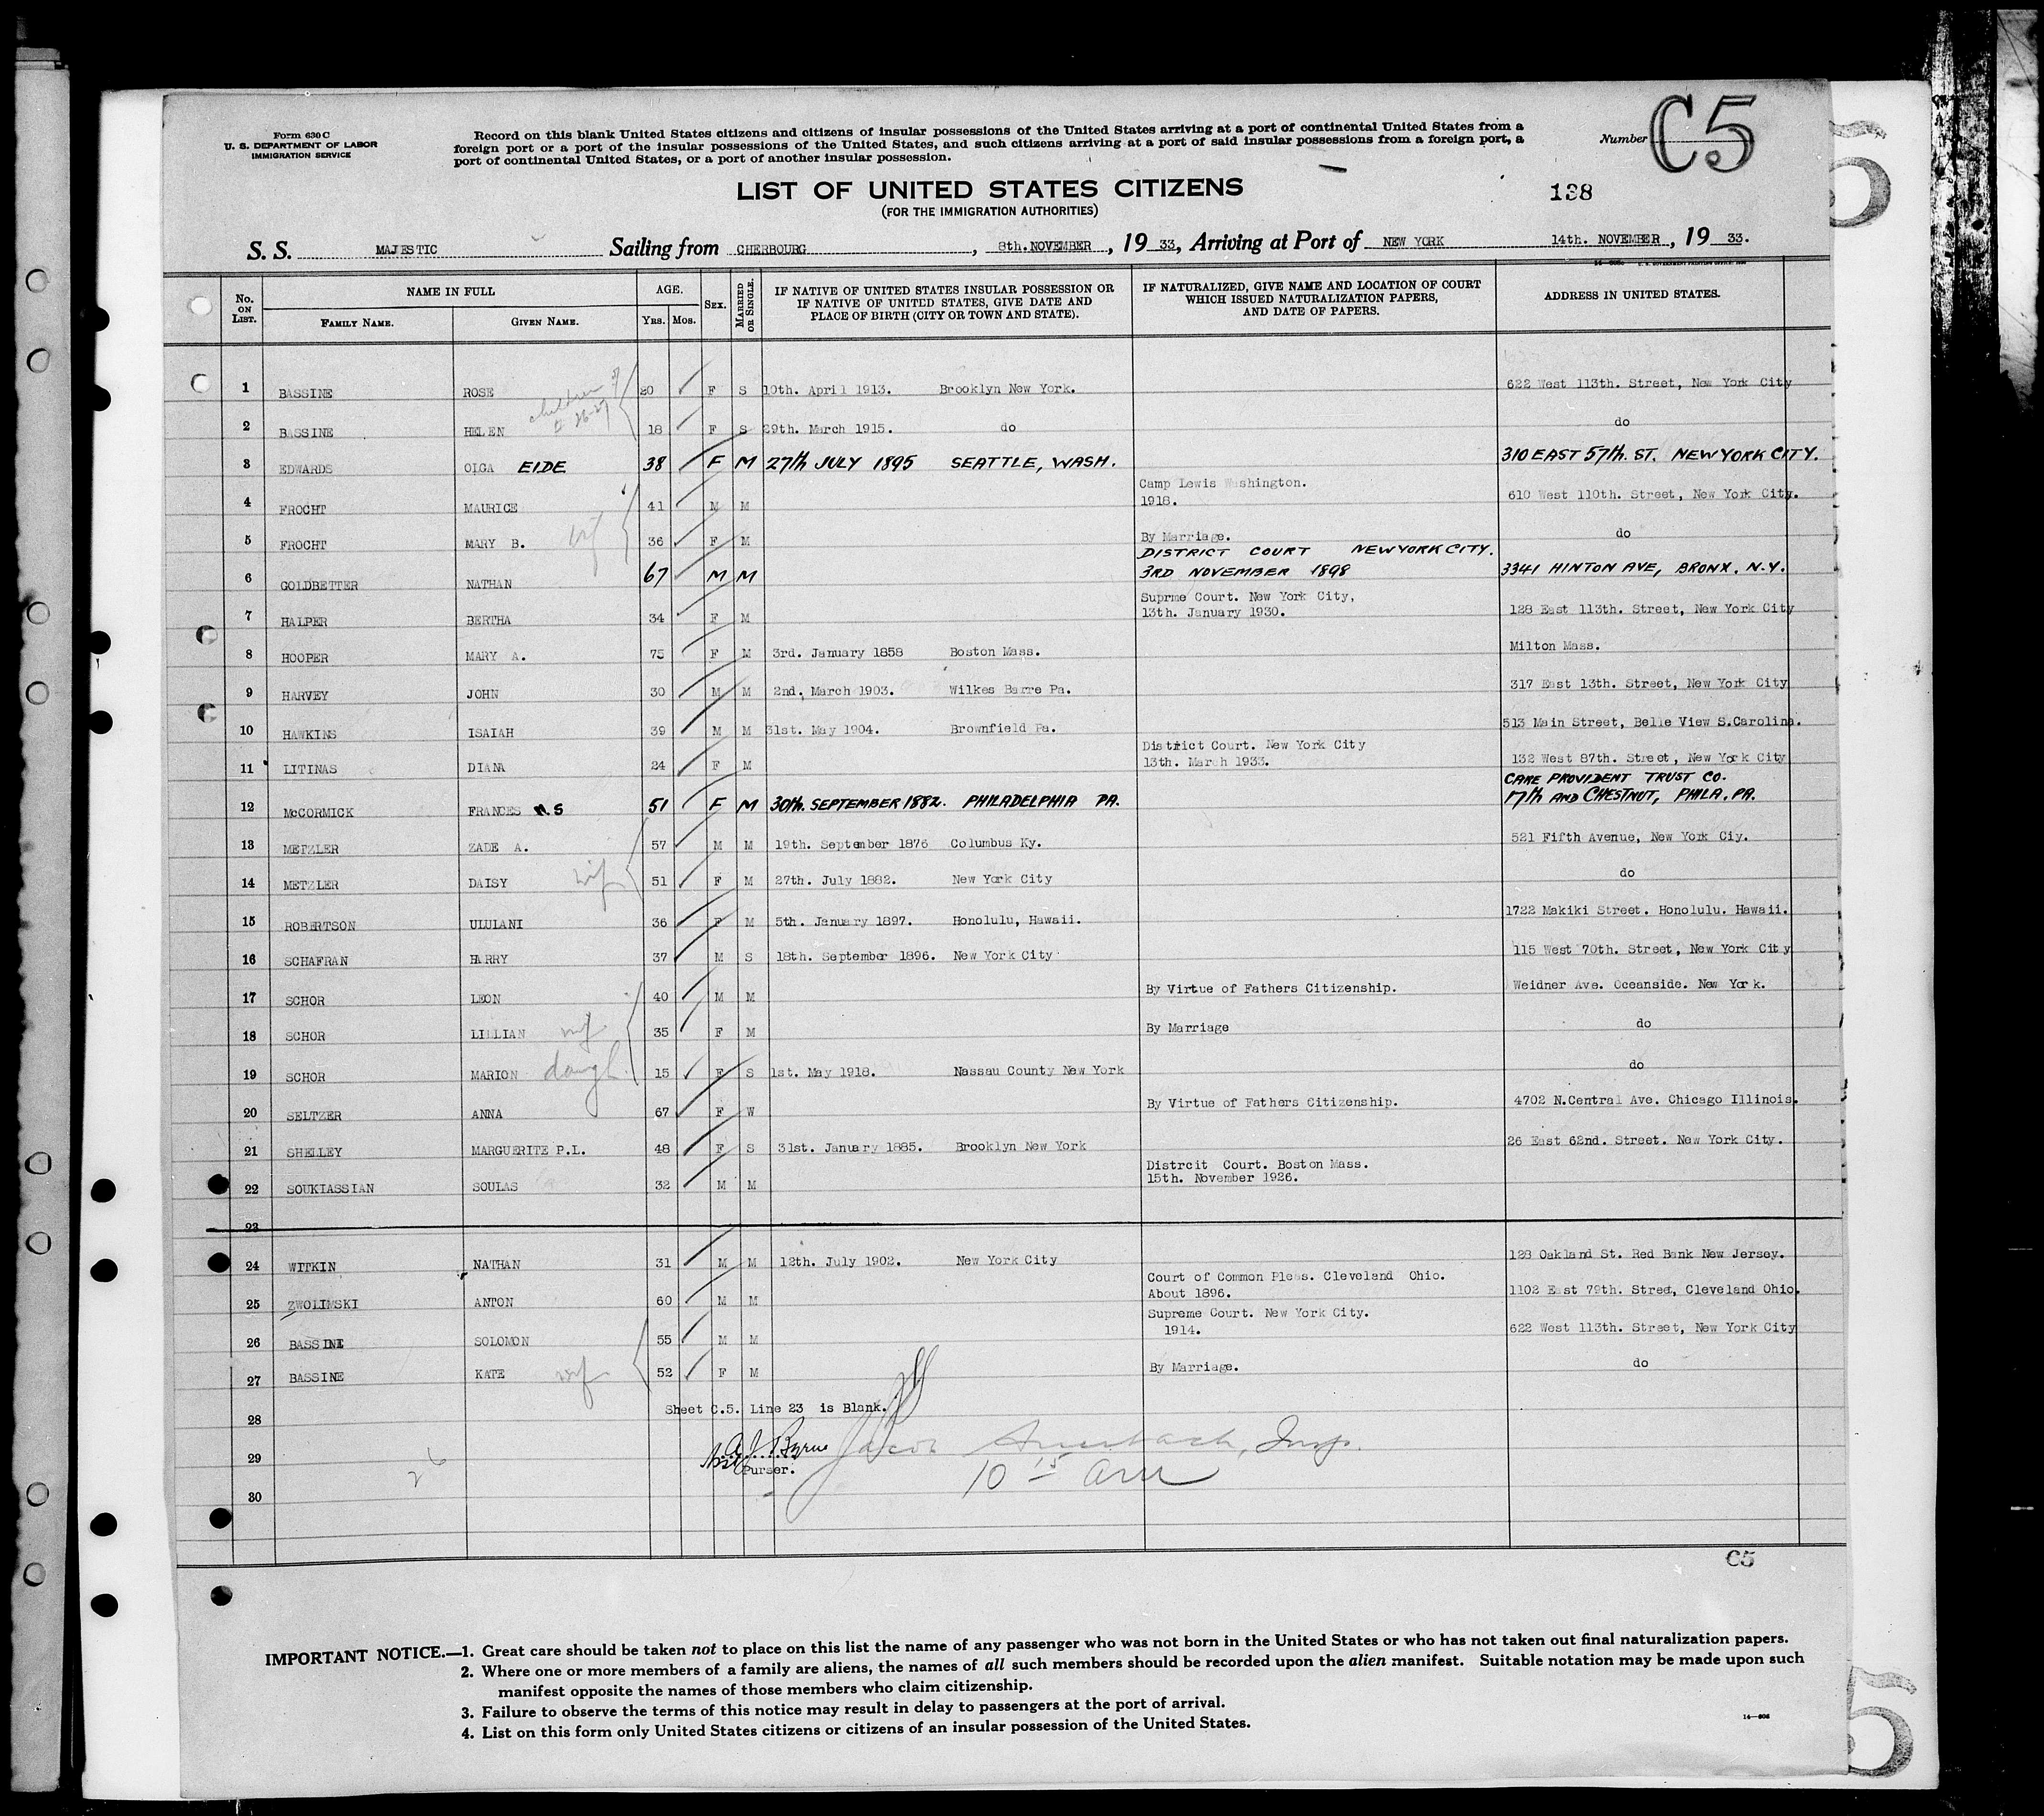 Form 630 C
U. S. DEPARTMENT OF LABOR
IMMIGRATION SERVICE
Record on this blank United States citizens and citizens of insular possessions of the United States arriving at a port of continental United States from a
foreign port or a port of the insular possessions of the United States, and such citizens arriving at a port of said insular possessions from a foreign port, a
port of continental United States, or a port of another insular possession.
Number C5
LIST OF UNITED STATES CITIZENS
(FOR THE IMMIGRATION AUTHORITIES)
138
S. S. MAJESTIC Sailing from CHERBOURG, 8th. NOVEMBER, 19 33, Arriving at Port of NEW YORK 14th. NOVEMBER, 19 33.
No. ON LIST. NAME IN FULL FAMILY NAME. GIVEN NAME. AGE. YRS. MOS. SEX. MARRIED OR SINGLE. IF NATIVE OF UNITED STATES INSULAR POSSESSION OR IF NATIVE OF UNITED STATES, GIVE DATE AND PLACE OF BIRTH (CITY OR TOWN AND STATE). IF NATURALIZED, GIVE NAME AND LOCATION OF COURT WHICH ISSUED NATURALIZATION PAPERS, AND DATE OF PAPERS. ADDRESS IN UNITED STATES.
1 BASSINE ROSE children of 20 F S 10th. April 1913. Brooklyn New York. 622 West 113th. Street, New York City
2 BASSINE HELEN 26-27 18 F S 29th. March 1915. do do
3 EDWARDS OLGA EIDE 38 F M 27th JULY 1895 SEATTLE, WASH. 310 EAST 57th. ST. NEW YORK CITY.
4 FROCHT MAURICE 41 M M Camp Lewis Washington. 1918. 610 West 110th. Street, New York City.
5 FROCHT MARY B. wif 36 F M By Marriage. do
6 GOLDBETTER NATHAN 67 M M DISTRICT COURT NEW YORK CITY. 3RD NOVEMBER 1898 3341 HINTON AVE, BRONX. N.Y.
7 HALPER BERTHA 34 F M Suprme Court. New York City, 13th. January 1930. 128 East 113th. Street, New York City
8 HOOPER MARY A. 75 F M 3rd. January 1858 Boston Mass. Milton Mass.
9 HARVEY JOHN 30 M M 2nd. March 1903. Wilkes Barre Pa. 317 East 13th. Street, New York City
10 HAWKINS ISAIAH 39 M M 31st. May 1904. Brownfield Pa. 513 Main Street, Belle View S.Carolina.
11 LITINAS DIANA 24 F M District Court. New York City 13th. March 1933. 132 West 87th. Street, New York City
12 McCORMICK FRANCES N.S 51 F M 30th. SEPTEMBER 1882. PHILADELPHIA PA. CARE PROVIDENT TRUST CO. 17th AND CHESTNUT, PHILA, PA.
13 METZLER ZADE A. 57 M M 19th. September 1876 Columbus Ky. 521 Fifth Avenue, New York Ciy.
14 METZLER DAISY wif 51 F M 27th. July 1882. New York City do
15 ROBERTSON ULULANI 36 F M 5th. January 1897. Honolulu, Hawaii. 1722 Makiki Street. Honolulu. Hawaii.
16 SCHAFRAN HARRY 37 M S 18th. September 1896. New York City 115 West 70th. Street, New York City
17 SCHOR LEON 40 M M By Virtue of Fathers Citizenship. Weidner Ave. Oceanside. New York.
18 SCHOR LILLIAN wif 35 F M By Marriage do
19 SCHOR MARION daugh. 15 F S 1st. May 1918. Nassau County New York do
20 SELTZER ANNA 67 F W By Virtue of Fathers Citizenship. 4702 N.Central Ave. Chicago Illinois.
21 SHELLEY MARGUERITE P.L. 48 F S 31st. January 1885. Brooklyn New York 26 East 62nd. Street. New York City.
22 SOUKIASSIAN SOULAS 32 M M Distrcit Court. Boston Mass. 15th. November 1926.
23
24 WITKIN NATHAN 31 M M 12th. July 1902. New York City 128 Oakland St. Red Bank New Jersey.
25 ZWOLINSKI ANTON 60 M M Court of Common Pleas. Cleveland Ohio. About 1896. 1102 East 79th. Street, Cleveland Ohio.
26 BASSINE SOLOMON 55 M M Supreme Court. New York City. 1914. 622 West 113th. Street, New York City
27 BASSINE KATE wif 52 F M By Marriage. do
28 Sheet C.5. Line 23 is Blank.
29 26 A J Byrne Jacob Auerbach, Insp.
Purser. 10 15 am
30
C5
IMPORTANT NOTICE.—1. Great care should be taken not to place on this list the name of any passenger who was not born in the United States or who has not taken out final naturalization papers.
2. Where one or more members of a family are aliens, the names of all such members should be recorded upon the alien manifest. Suitable notation may be made upon such
manifest opposite the names of those members who claim citizenship.
3. Failure to observe the terms of this notice may result in delay to passengers at the port of arrival.
4. List on this form only United States citizens or citizens of an insular possession of the United States.
14—606
5
5